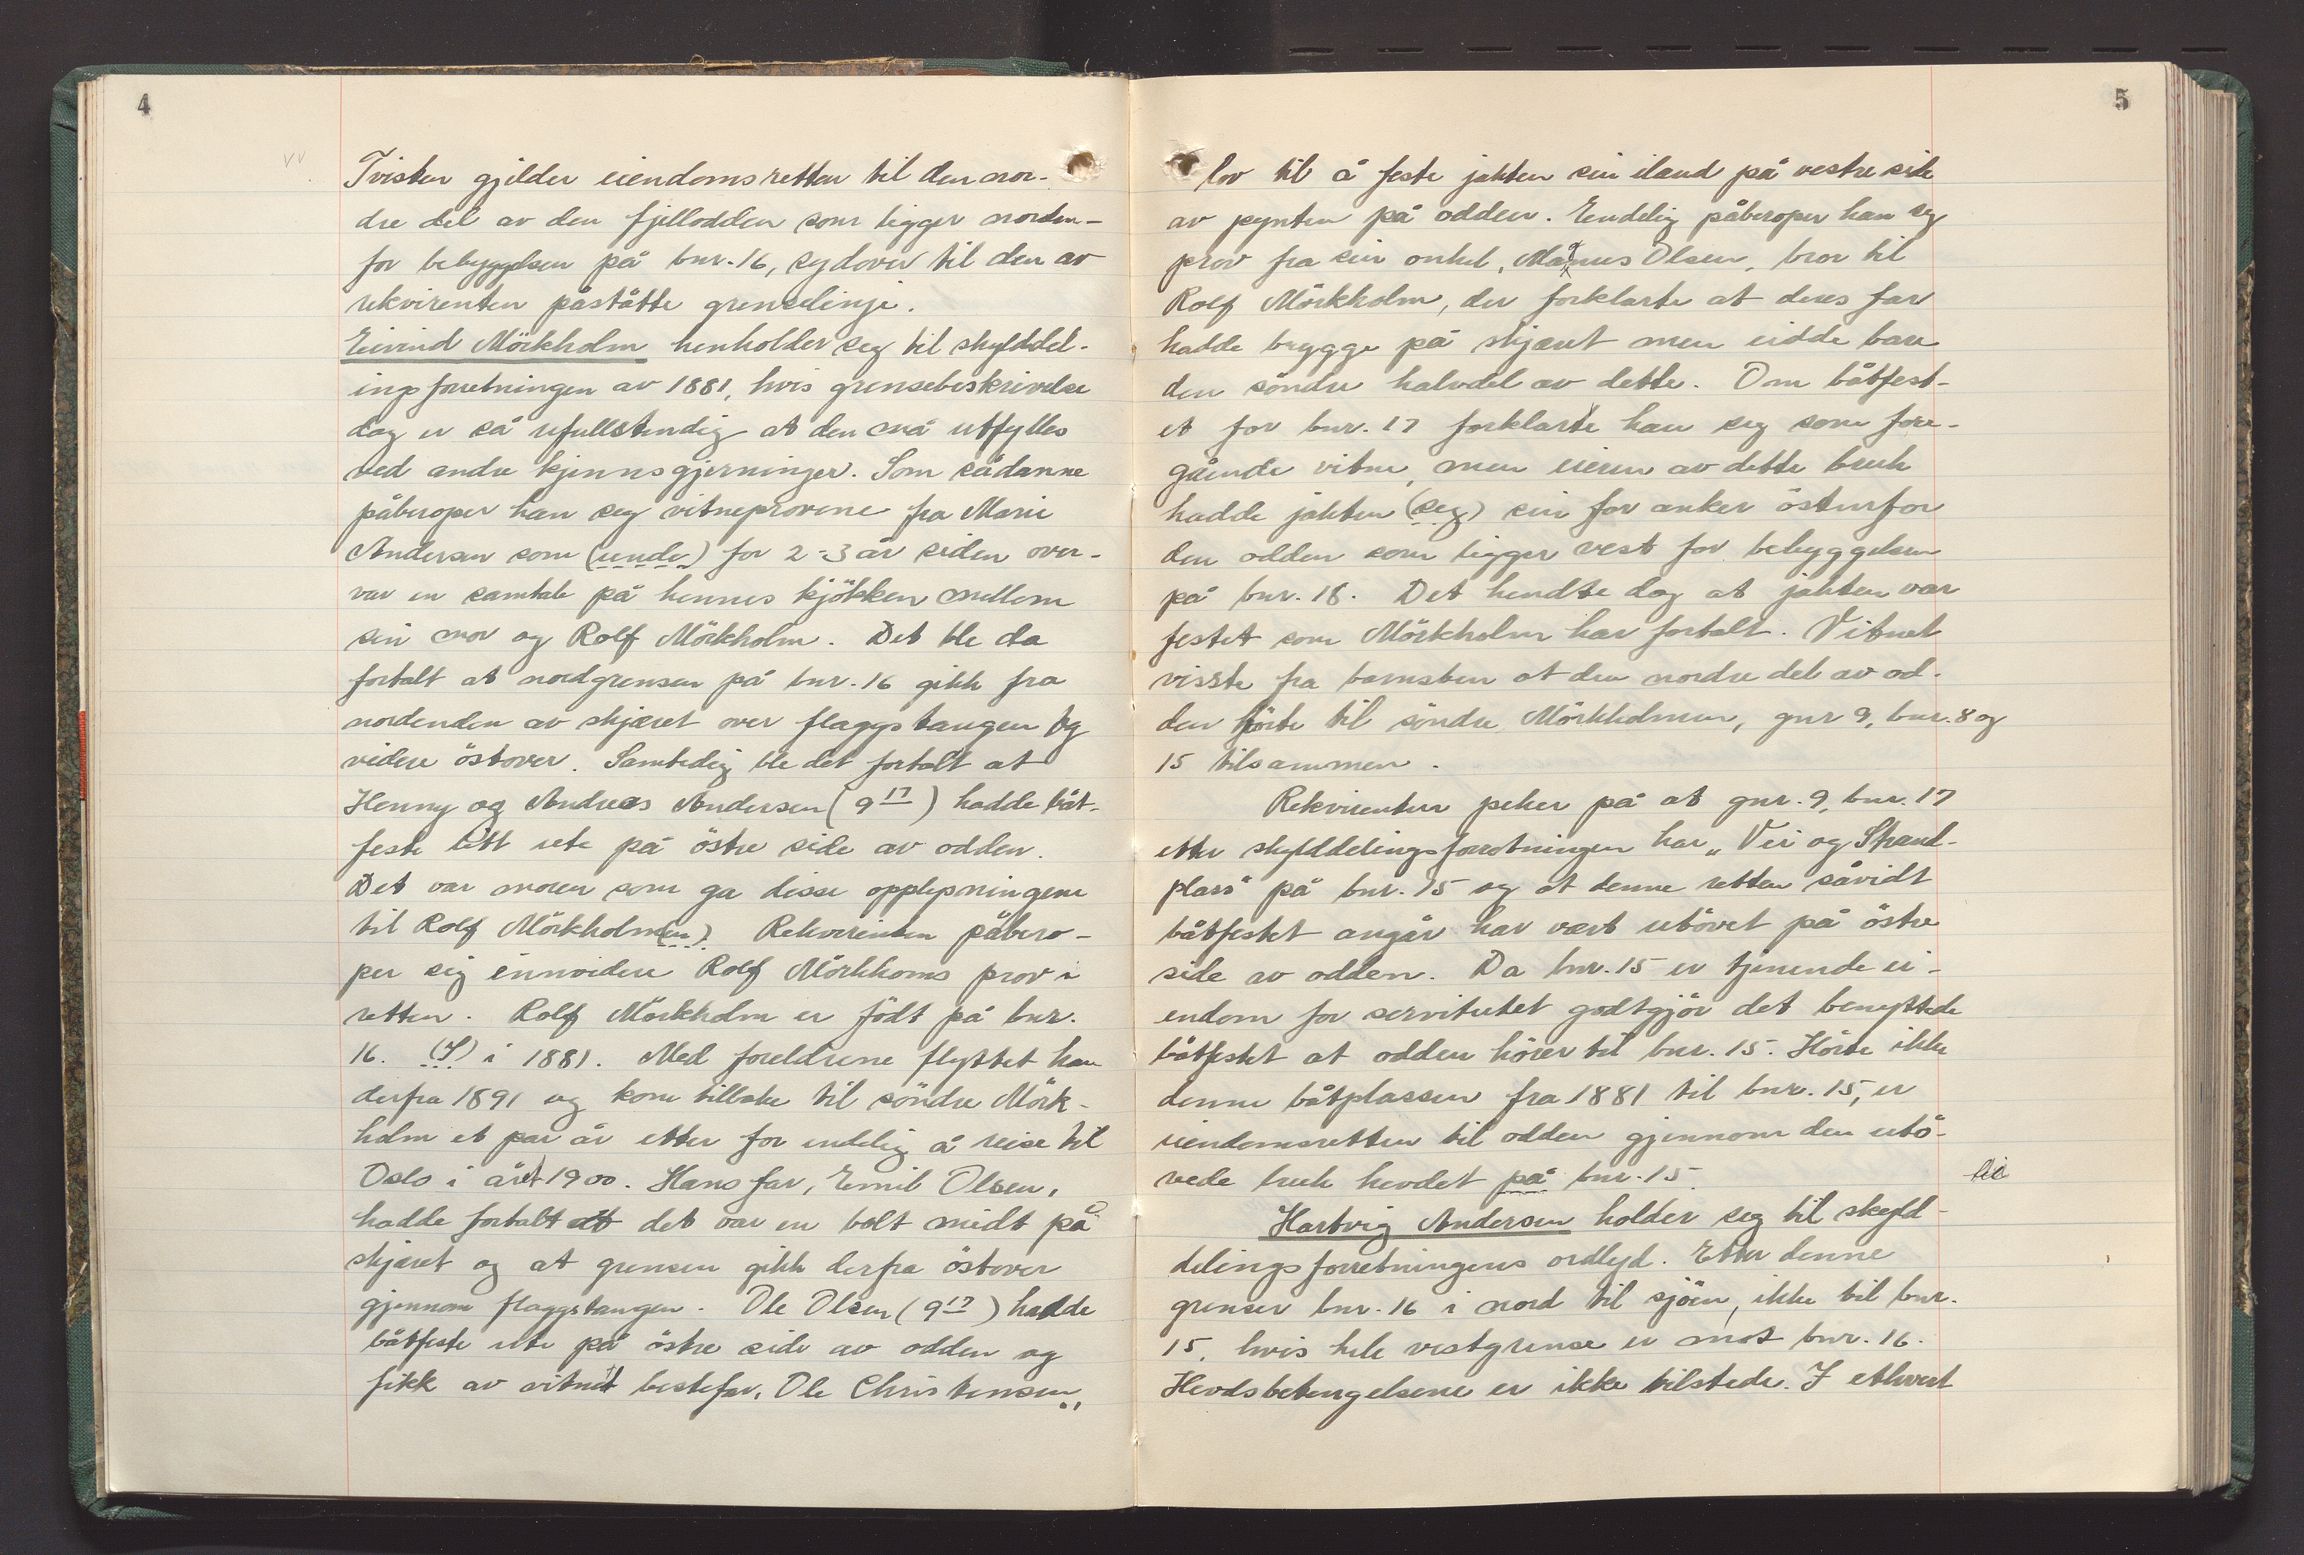 4
Tvisten gjelder eiendomsretten til den nor-
dre del av den fjellodden som ligger norden-
for bebyggelsen på bnr. 16, sydover til den av
rekvirenten påståtte grenselinje.
Eivind Mörkholm henholder seg til skylddel-
ingsforretningen av 1881, hvis grensebeskrivelse
dog er så ufullstendig at den må utfylles
ved andre kjennsgjerninger. Som sådanne
påberoper han seg vitneprovene fra Marie
Andersen som (unde) for 2-3 år siden over-
var en samtale på hennes kjökken mellem
sin mor og Rolf Mörkholm. Det ble da
fortalt at nordgrensen på bnr. 16 gikk fra
nordenden av skjæret over flaggstangen og
videre östover. Samtidig ble det fortalt at
Henny og Andreas Andersen (9 17) hadde båt-
feste litt ute på östre side av odden.
Det var moren som ga disse opplysningene
til Rolf Mörkholm(en). Rekvirenten påbero-
per sig ennvidere Rolf Mörkhoms prov i
retten. Rolf Mörkholm er födt på bnr.
16. (I) i 1881. Med foreldrene flyttet han
derfra 1891 og kom tilbake til söndre Mörk-
holm et par år etter for endelig å reise til
Oslo i året 1900. Hans far, Emil Olsen,
hadde fortalt at det var en bolt midt på
skjæret og at grensen gikk derfra östover
gjennom flaggstangen. Ole Olsen (9 17) hadde
båtfeste ute på östre side av odden og
fikk av vitnet bestefar, Ole Christensen,
5
lov til å feste jakten sin iland på vestre side
av pynten på odden. Endelig påberoper han seg
prov fra sin onkel, Magnus Olsen, bror til
Rolf Mörkholm, der forklarte at deres far
hadde brygge på skjæret men eidde bare
den söndre halvdel av dette. Om båtfest-
et for bnr. 17 forklarte han seg som fore-
gående vitne, men eieren av dette bruk
hadde jakten (seg) sin for anker östenfor
den odden som ligger vest for bebyggelsen
på bnr. 18. Det hendte dog at jakten var
festet som Mörkholm har fortalt. Vitnet
visste fra barnsben at den nordre del av od-
den hörte til söndre Mörkholmen, gnr 9, bnr. 8 og
15 tilsammen.
Rekvirenten peker på at gnr. 9, bnr. 17
etter skylddelingsforretningen har „Vei og Strand-
plass" på bnr. 15 og at denne retten såvidt
båtfestet angår har vært utövet på östre
side av odden. Da bnr. 15 er tjenende ei-
endom for servitutet godtgjör det benyttede
båtfestet at odden hörer til bnr. 15. Hörte ikke
denne båtplassen fra 1881 til bnr. 15, er
eiendomsretten til odden gjennom den utö-
vede bruk hevdet på bnr. 15.
Hartvig Andersen holder seg til skyld-
delingsforretningens ordlyd. Etter denne
grenser bnr. 16 i nord til sjöen, ikke til bnr.
15, hvis hele vestgrense er mot bnr. 16.
Hevdsbetingelsene er ikke tilstede. I ethvert